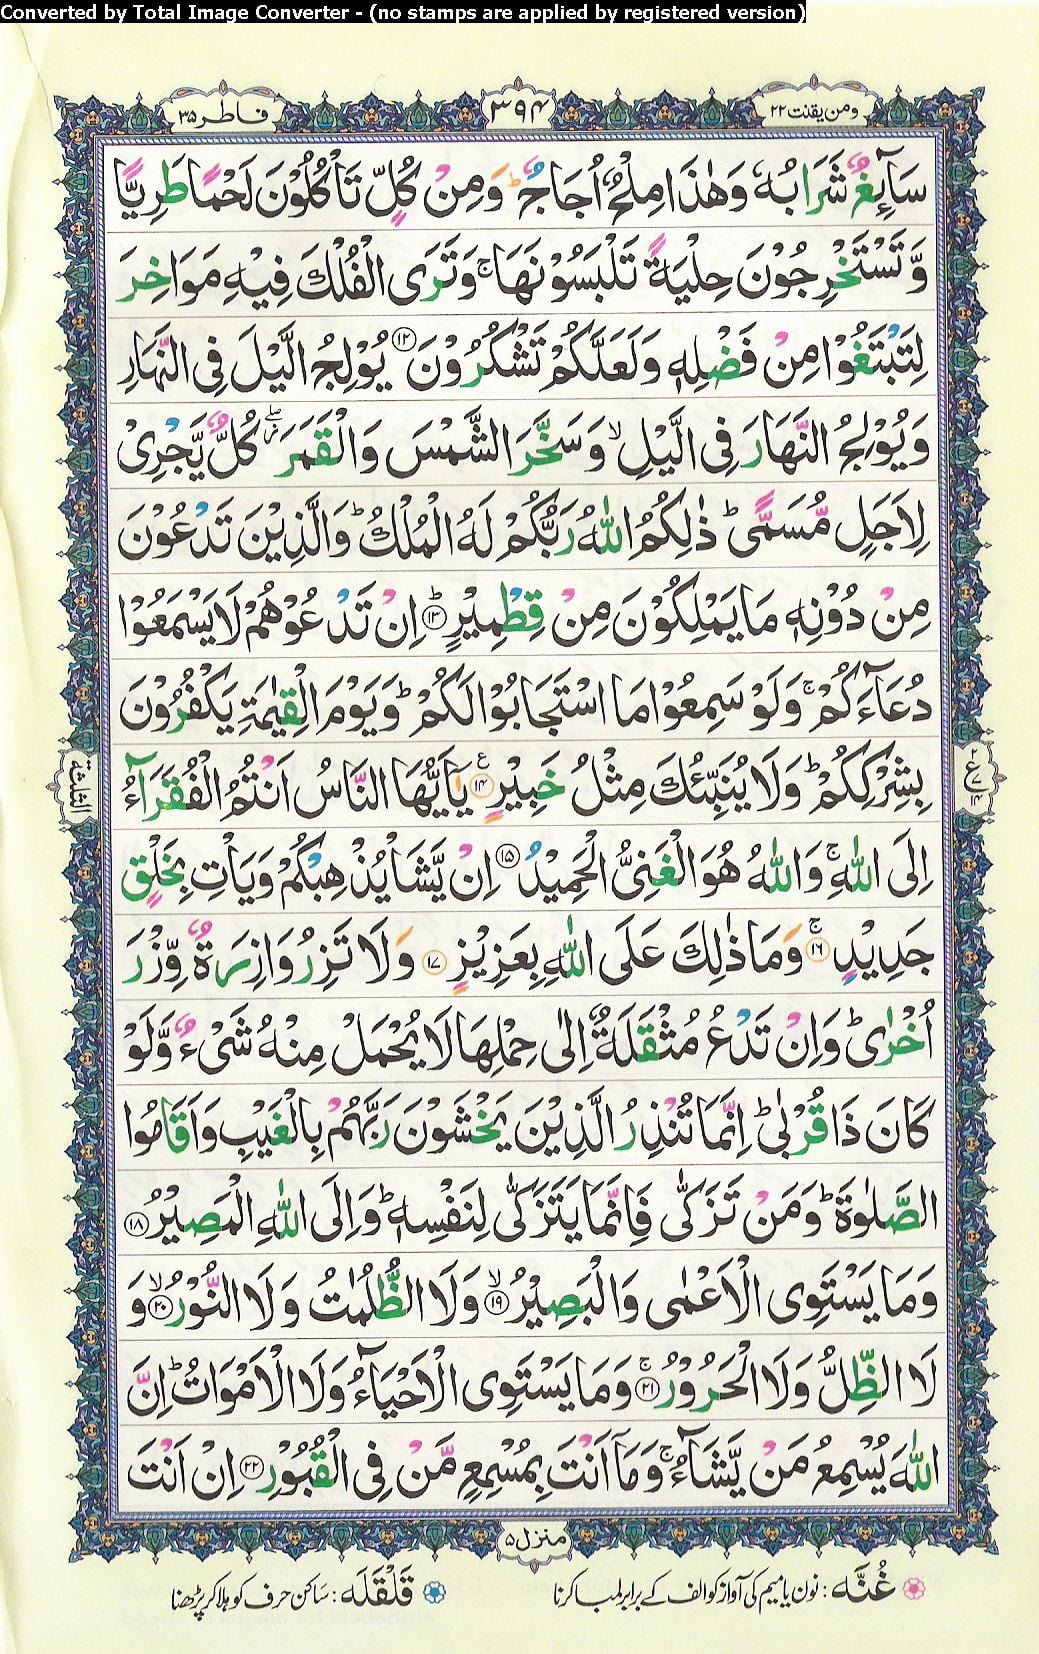 Converted by Total Image Converter - (no stamps are applied by registered version)
ومن یقنت ۲۲
۳۹۴
فاطر ۳۵
سَآىِٕغٌ شَرَابُهٗ وَهٰذَا مِلْحٌ اُجَاجٌ ؕ وَمِنْ كُلٍّ تَاْكُلُوْنَ لَحْمًا طَرِيًّا
وَّ تَسْتَخْرِجُوْنَ حِلْيَةً تَلْبَسُوْنَهَا ۚ وَتَرَى الْفُلْكَ فِيْهِ مَوَاخِرَ
لِتَبْتَغُوْا مِنْ فَضْلِهٖ وَلَعَلَّكُمْ تَشْكُرُوْنَ ⑫ يُوْلِجُ الَّيْلَ فِى النَّهَارِ
وَيُوْلِجُ النَّهَارَ فِى الَّيْلِ ۙ وَسَخَّرَ الشَّمْسَ وَالْقَمَرَ ۖ كُلٌّ يَّجْرِىْ
لِاَجَلٍ مُّسَمًّى ؕ ذٰلِكُمُ اللّٰهُ رَبُّكُمْ لَهُ الْمُلْكُ ؕ وَالَّذِيْنَ تَدْعُوْنَ
مِنْ دُوْنِهٖ مَا يَمْلِكُوْنَ مِنْ قِطْمِيْرٍ ؕ ⑬ اِنْ تَدْعُوْهُمْ لَا يَسْمَعُوْا
دُعَآءَكُمْ ۚ وَلَوْ سَمِعُوْا مَا اسْتَجَابُوْا لَكُمْ ؕ وَيَوْمَ الْقِيٰمَةِ يَكْفُرُوْنَ
بِشِرْكِكُمْ ؕ وَلَا يُنَبِّئُكَ مِثْلُ خَبِيْرٍ ⑭ ع يٰۤاَيُّهَا النَّاسُ اَنْتُمُ الْفُقَرَآءُ
اِلَى اللّٰهِ ۚ وَاللّٰهُ هُوَ الْغَنِىُّ الْحَمِيْدُ ⑮ اِنْ يَّشَاْ يُذْهِبْكُمْ وَيَاْتِ بِخَلْقٍ
جَدِيْدٍ ۚ ⑯ وَمَا ذٰلِكَ عَلَى اللّٰهِ بِعَزِيْزٍ ⑰ وَلَا تَزِرُ وَازِرَةٌ وِّزْرَ
اُخْرٰى ؕ وَاِنْ تَدْعُ مُثْقَلَةٌ اِلٰى حِمْلِهَا لَا يُحْمَلْ مِنْهُ شَىْءٌ وَّلَوْ
كَانَ ذَا قُرْبٰى ؕ اِنَّمَا تُنْذِرُ الَّذِيْنَ يَخْشَوْنَ رَبَّهُمْ بِالْغَيْبِ وَاَقَامُوا
الصَّلٰوةَ ؕ وَمَنْ تَزَكّٰى فَاِنَّمَا يَتَزَكّٰى لِنَفْسِهٖ ؕ وَاِلَى اللّٰهِ الْمَصِيْرُ ⑱
وَمَا يَسْتَوِى الْاَعْمٰى وَالْبَصِيْرُ ۙ ⑲ وَلَا الظُّلُمٰتُ وَلَا النُّوْرُ ۙ ⑳ وَ
لَا الظِّلُّ وَلَا الْحَرُوْرُ ۚ ㉑ وَمَا يَسْتَوِى الْاَحْيَآءُ وَلَا الْاَمْوَاتُ ؕ اِنَّ
اللّٰهَ يُسْمِعُ مَنْ يَّشَآءُ ۚ وَمَاۤ اَنْتَ بِمُسْمِعٍ مَّنْ فِى الْقُبُوْرِ ㉒ اِنْ اَنْتَ
الثلثة
ع
منزل ۵
غُنَّه : نون یا میم کی آواز کو الف کے برابر لمبا کرنا
قَلْقَلَه : ساکن حرف کو ہلا کر پڑھنا